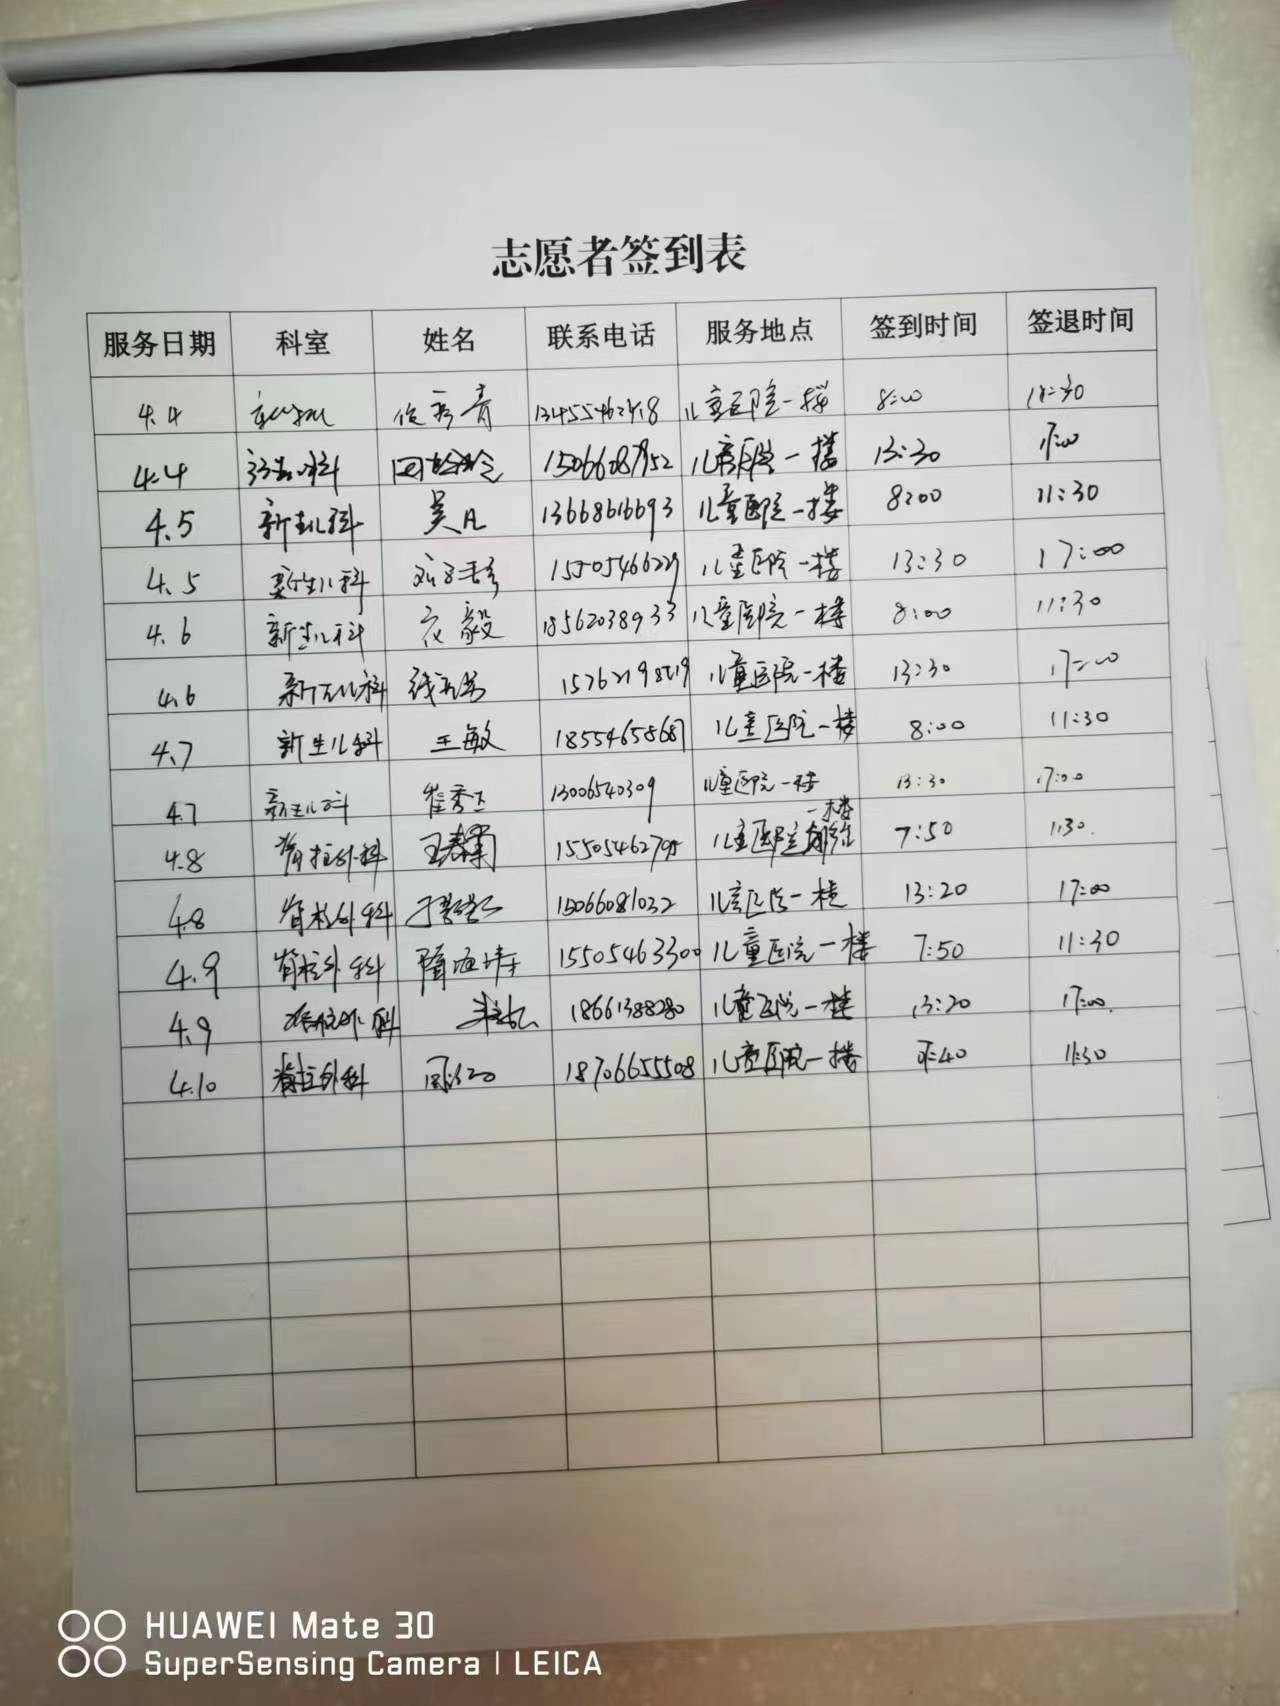 志愿者签到表
服务日期 科室 姓名 联系电话 服务地点 签到时间 签退时间
4.4 儿童医院一楼 8:00 11:30
4.4 儿童医院一楼 13:30 17:00
4.5 新生儿科 吴凡 13668616693 儿童医院一楼 8:00 11:30
4.5 新生儿科 15505466229 儿童医院一楼 13:30 17:00
4.6 新生儿科 衣毅 18562038933 儿童医院一楼 8:00 11:30
4.6 新生儿科 儿童医院一楼 13:30 17:00
4.7 新生儿科 王敏 18554655687 儿童医院一楼 8:00 11:30
4.7 新生儿科 崔秀 13006540309 儿童医院一楼 13:30 17:00
4.8 脊柱外科 儿童医院 一楼 7:50 11:30
4.8 脊柱外科 15066081032 儿童医院一楼 13:20 17:00
4.9 脊柱外科 隋海涛 15505463300 儿童医院一楼 7:50 11:30
4.9 脊柱外科 18661388280 儿童医院一楼 13:20 17:00
4.10 脊柱外科 18706655508 儿童医院一楼 11:30
HUAWEI Mate 30
SuperSensing Camera | LEICA